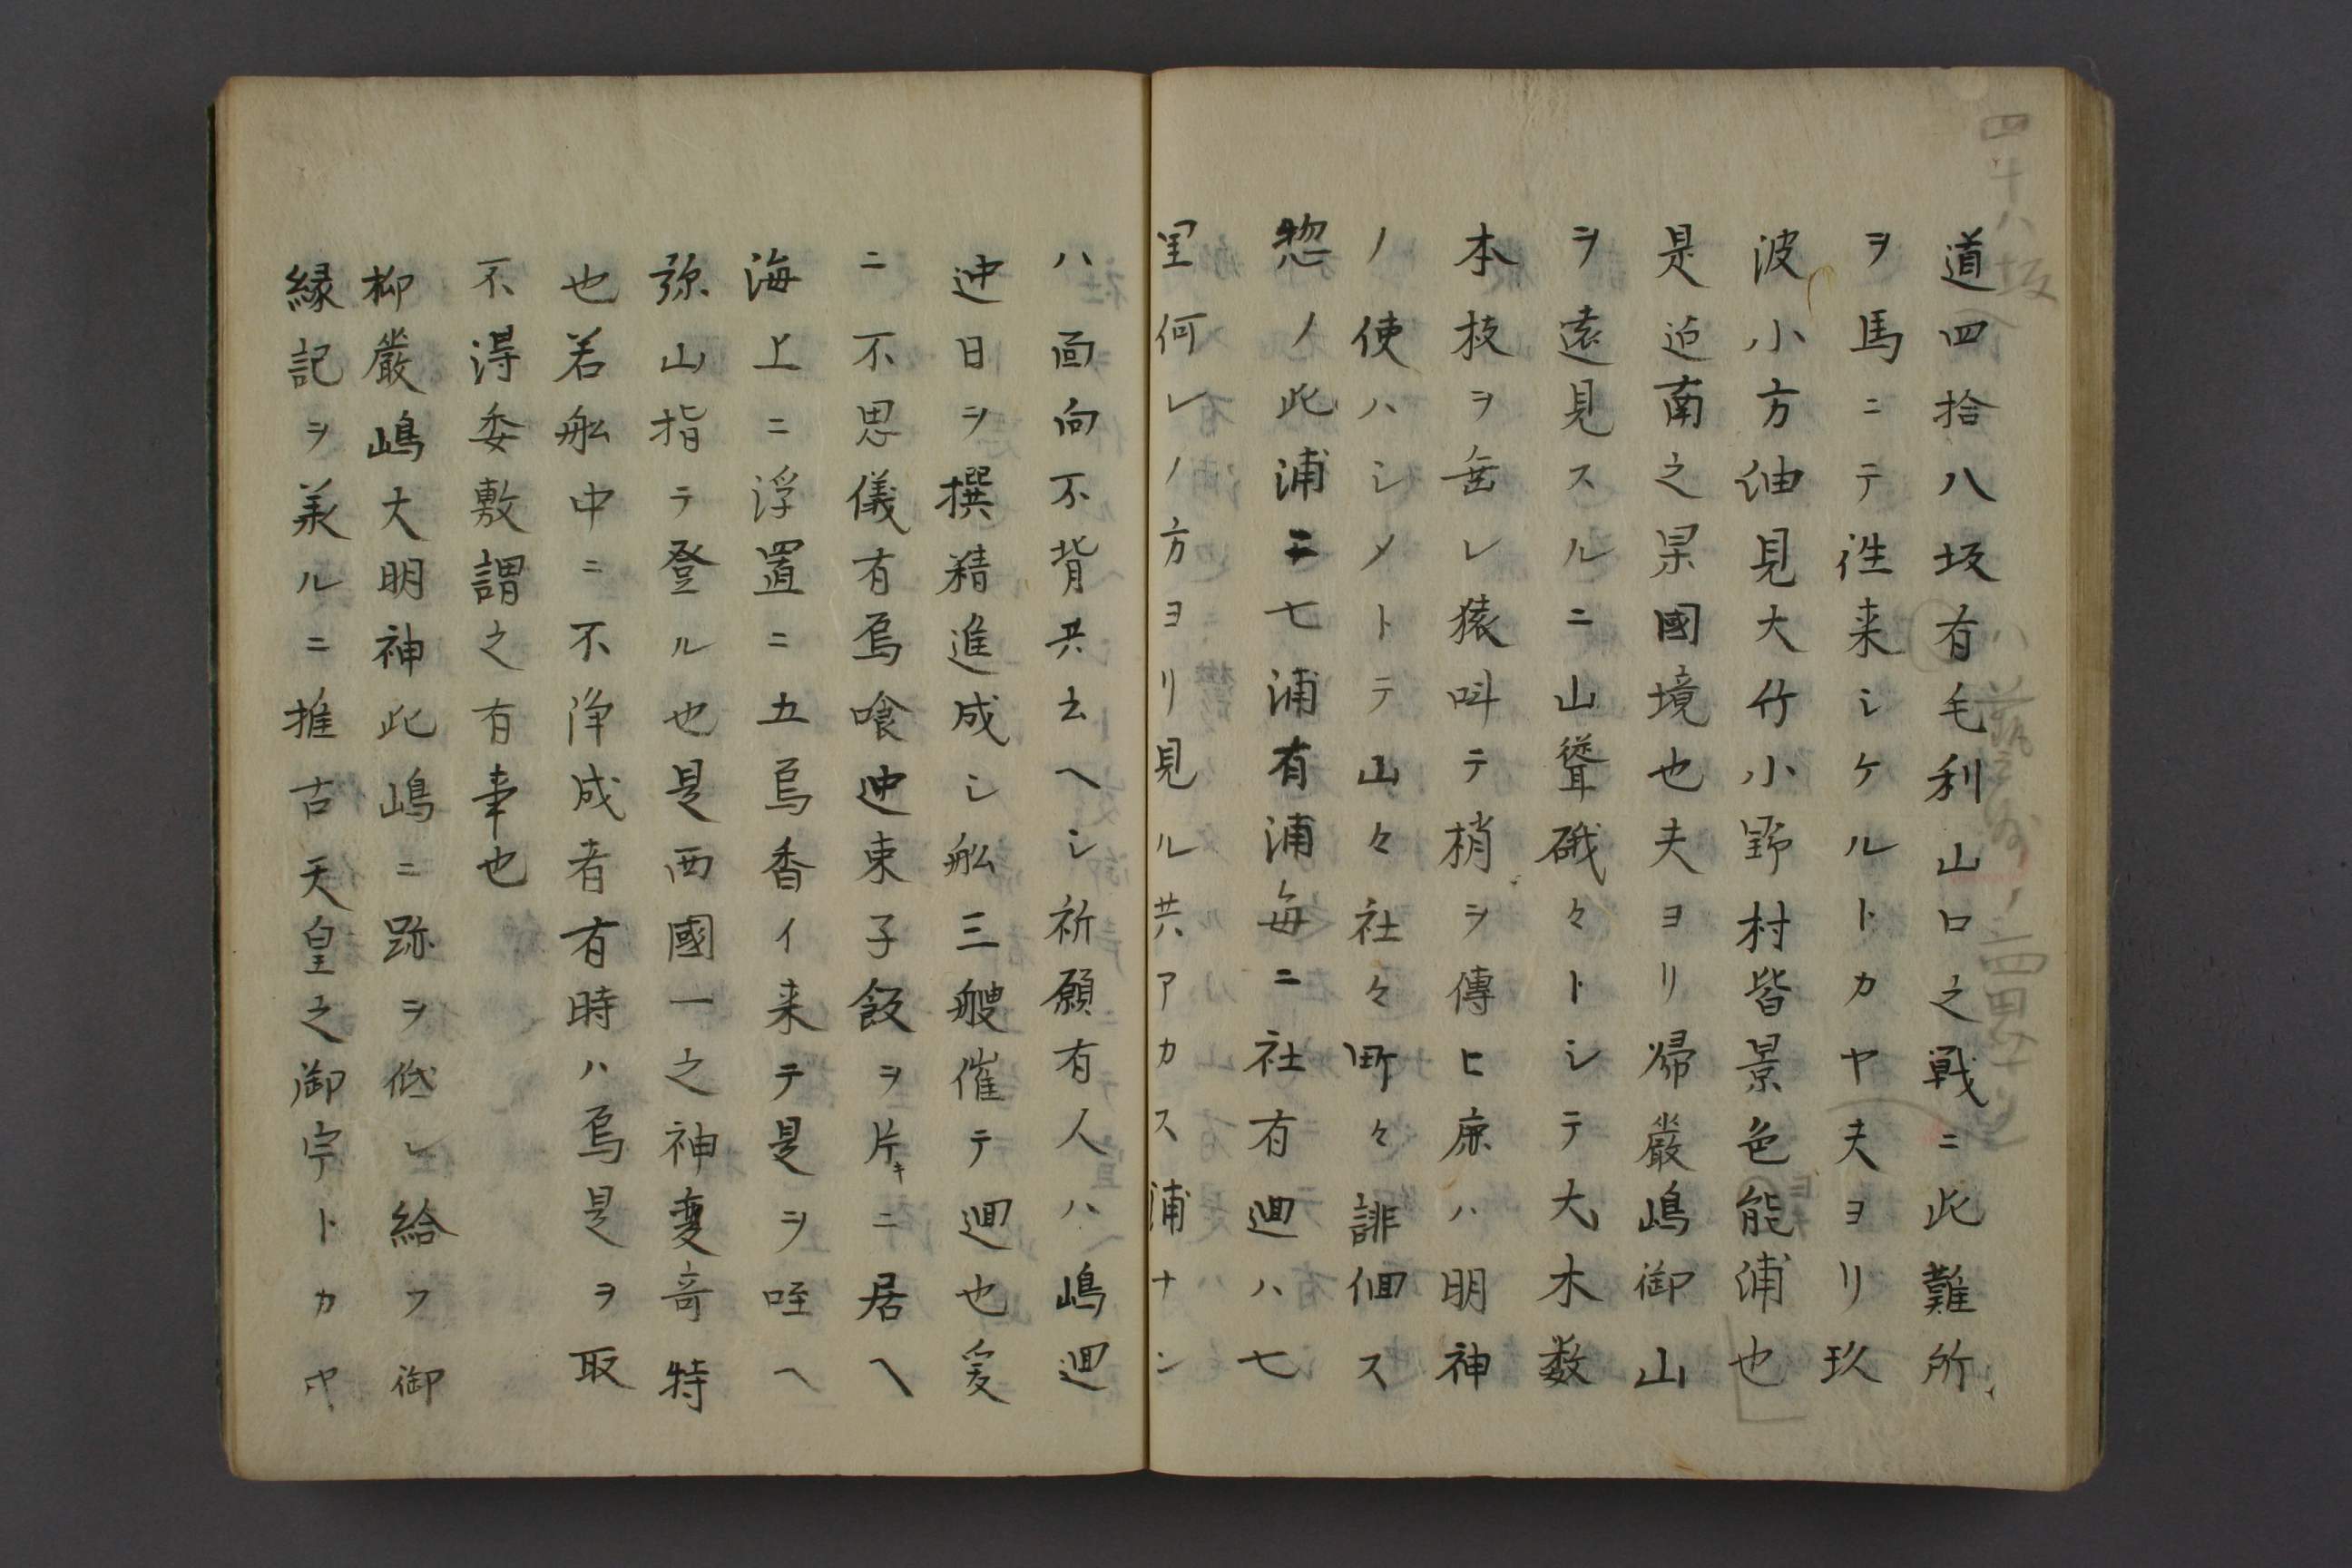 道四拾八坂有毛利山口之戦ニ此難所
ヲ馬ニテ往来シケルトカヤ夫ヨリ玖
波小方油見大竹小野村皆景色能浦也
是迠南之果國境也夫ヨリ帰嚴嶋御山
ヲ遠見スルニ山聳硪々トシテ大木数
本枝ヲ垂レ猿叫テ梢ヲ傳ヒ鹿ハ明神
ノ使ハシメトテ山々社々町々誹徊ス
惣ノ此浦ニ七浦有浦毎ニ社有廻ハ七
里何レノ方ヨリ見ル共アカス浦ナン
ハ面向不背共云ヘシ祈願有人ハ嶋廻
迚日ヲ撰精進成シ舩三艘催テ廻也爰
ニ不思儀有烏喰迚束子飯ヲ片キニ居ヘ
海上ニ浮置ニ五烏香イ来テ是ヲ咥ヘ
弥山指テ登ル也是西國一之神変奇特
也若舩中ニ不浄成者有時ハ烏是ヲ取
不得委敷謂之有事也
抑嚴嶋大明神此嶋ニ跡ヲ低レ給フ御
縁記ヲ羕ルニ推古天皇之御宇トカヤ
四十八坂